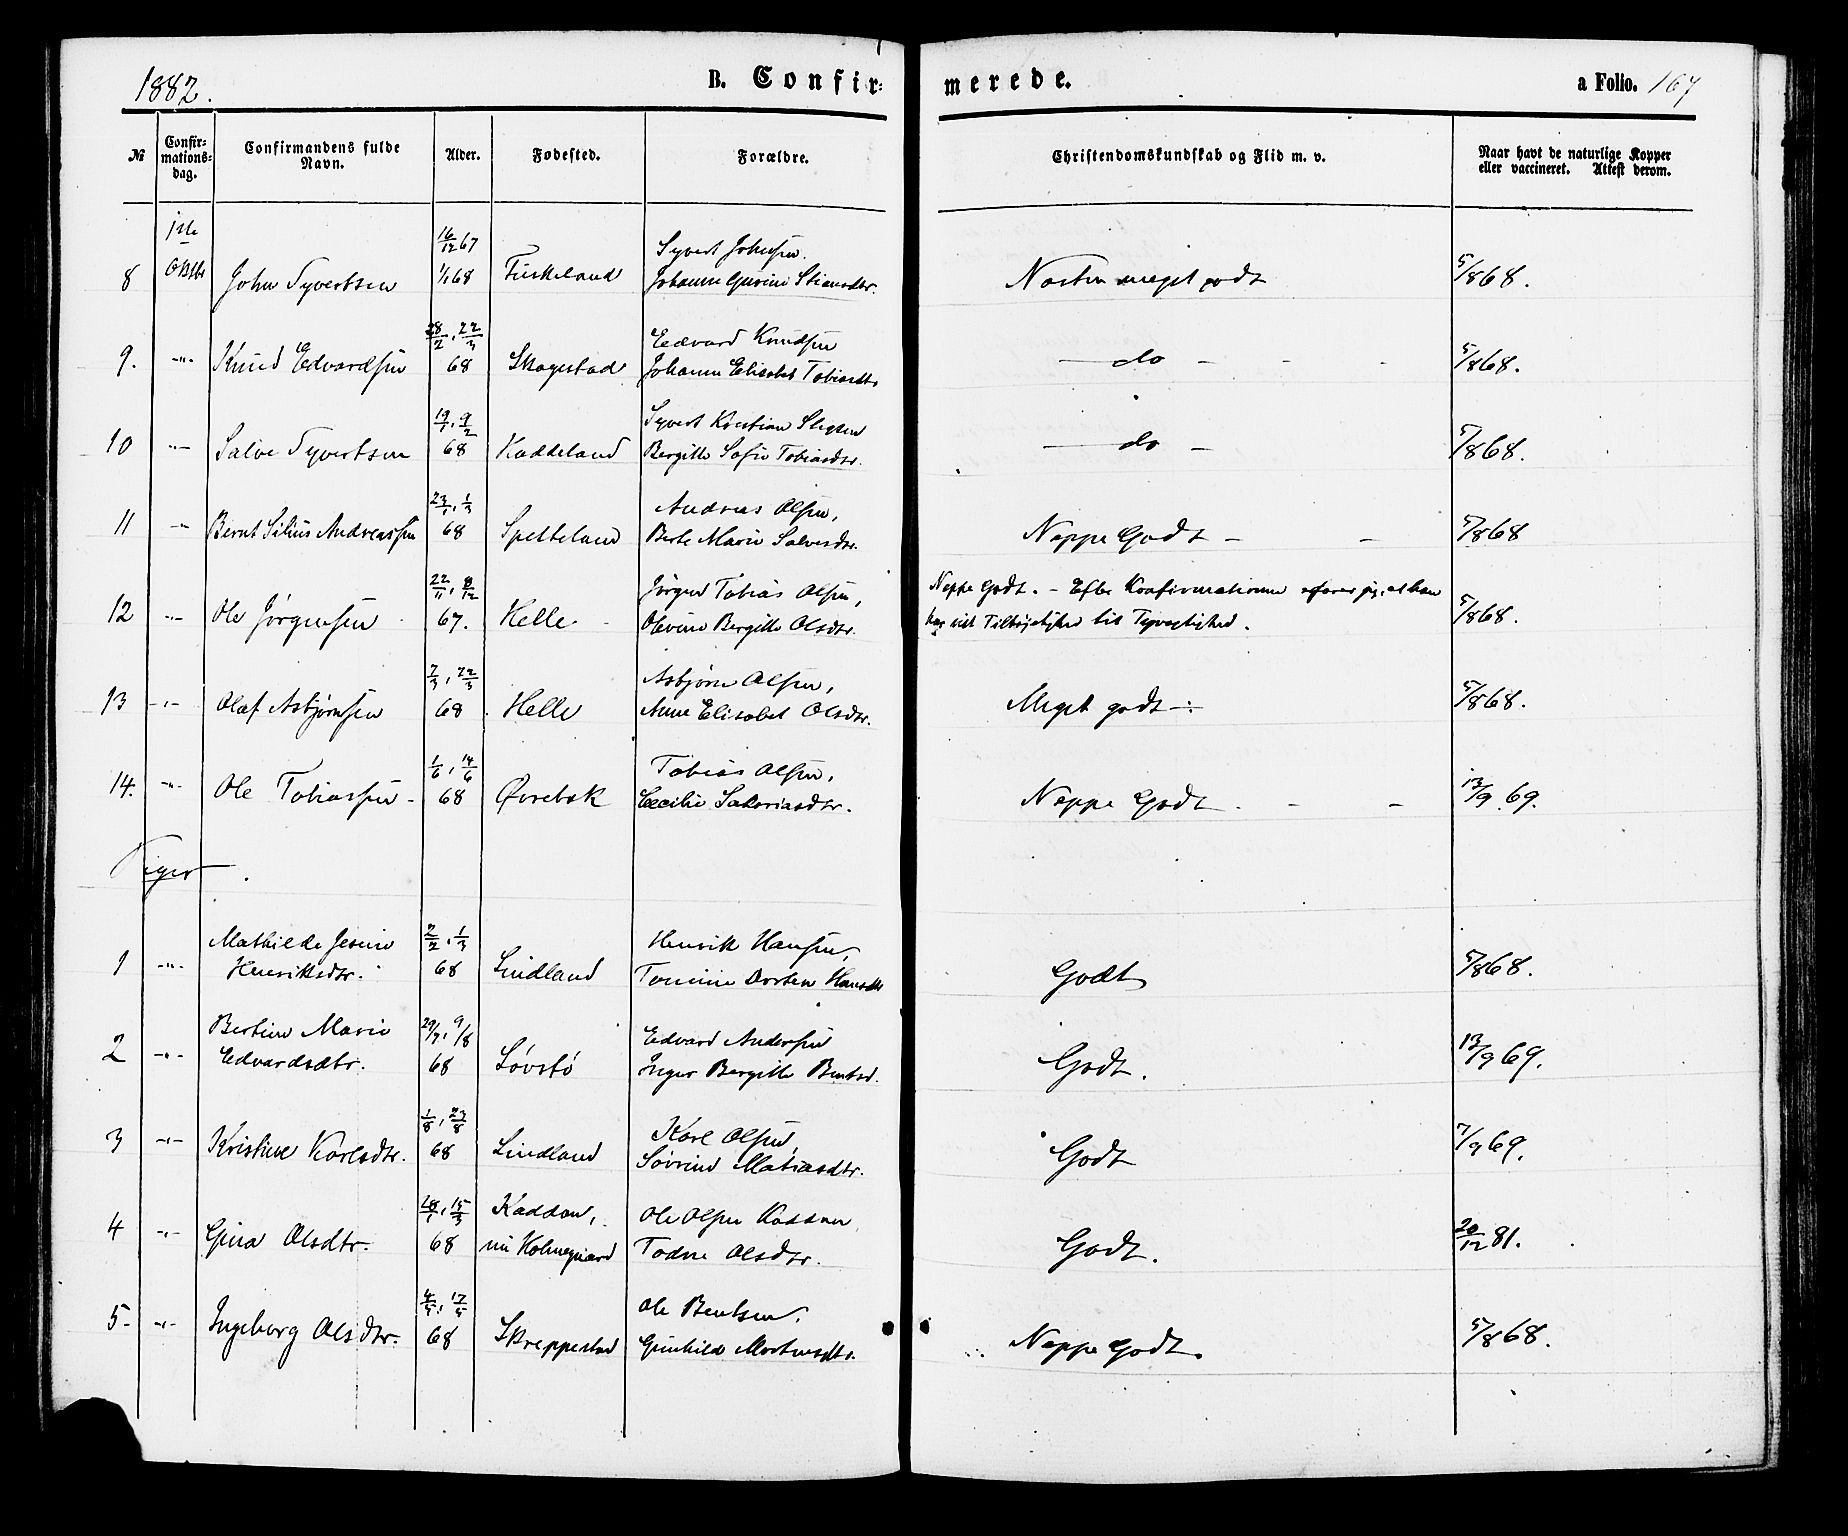 1882.
B. Confir-
merede.
a Folio. 167
№
Confir-
mations-
dag.
Confirmandens fulde
Navn.
Alder.
Fødested.
Forældre.
Christendomskundskab og Flid m. v.
Naar havt de naturlige Kopper
eller vaccineret. Attest derom.
8 1ste Oktbr John Syvertsen 16/12 67 1/1 68 Fuskeland Syvert Johnsen. Johanne Gurine Stiansdtr. Næsten meget godt 5/8 68.
9. -"- Knud Edvardsen 28/2, 22/3 68 Skagestad Edvard Knudsen Johanne Elisabet Tobiasdtr do - - - 5/8 68.
10 -"- Salve Syvertsen 19/1, 9/2 68 Kaddeland Syvert Kristian Stigsen Bergitte Sofie Tobiasdtr. do - 5/8 68.
11 -"- Bernt Silius Andreassen 23/1, 1/3 68 Spetteland Andreas Olsen, Berte Marie Salvesdtr. Neppe Godt - - 5/8 68
12 -"- Ole Jørgensen 22/11, 8/12 67. Helle Jørgen Tobias Olsen, Olevine Bergitte Olsdtr. Neppe Godt. - Efter Konfirmationen erfarer jeg, at han
har vist Tilbøjelighed til Tyvagtighed. 5/8 68.
13 -"- Olaf Asbjørnsen 7/3, 22/3 68 Helle Asbjørn Olsen, Anne Elisabet Olsdtr. Meget godt 5/8 68.
14. -"- Ole Tobiassen 1/6, 14/6 68 Øvrebøk Tobias Olsen, Cecilie Sakariasdtr. Neppe Godt. - - 13/9 69.
Piger.
1 -"- Mathilde Jesine Henriksdtr. 2/2, 1/3 68 Lindland Henrik Hansen, Tomine Dorthea Hansdtr Godt 5/8 68.
2 -"- Bertine Marie Edvardsdtr. 29/7, 9/8 68 Løvstø Edvard Andersen Inger Bergitte Bentsd. Godt. 13/9 69.
3 -"- Kristine Karlsdtr. 1/8, 23/8 68 Lindland Karl Olsen, Søvrine Matiasdtr. Godt 7/9 69.
4 -"- Gina Olsdtr. 18/1, 15/3 68 Kaddan, nu Holmegaard Ole Olsen Kaddan Todne Olsdtr. Godt. 20/12 81.
5- -"- Ingeborg Olsdtr. 4/5, 17/5 68 Skreppestad Ole Bentsen, Gunhild Mortensdtr. Neppe Godt. 5/8 68.